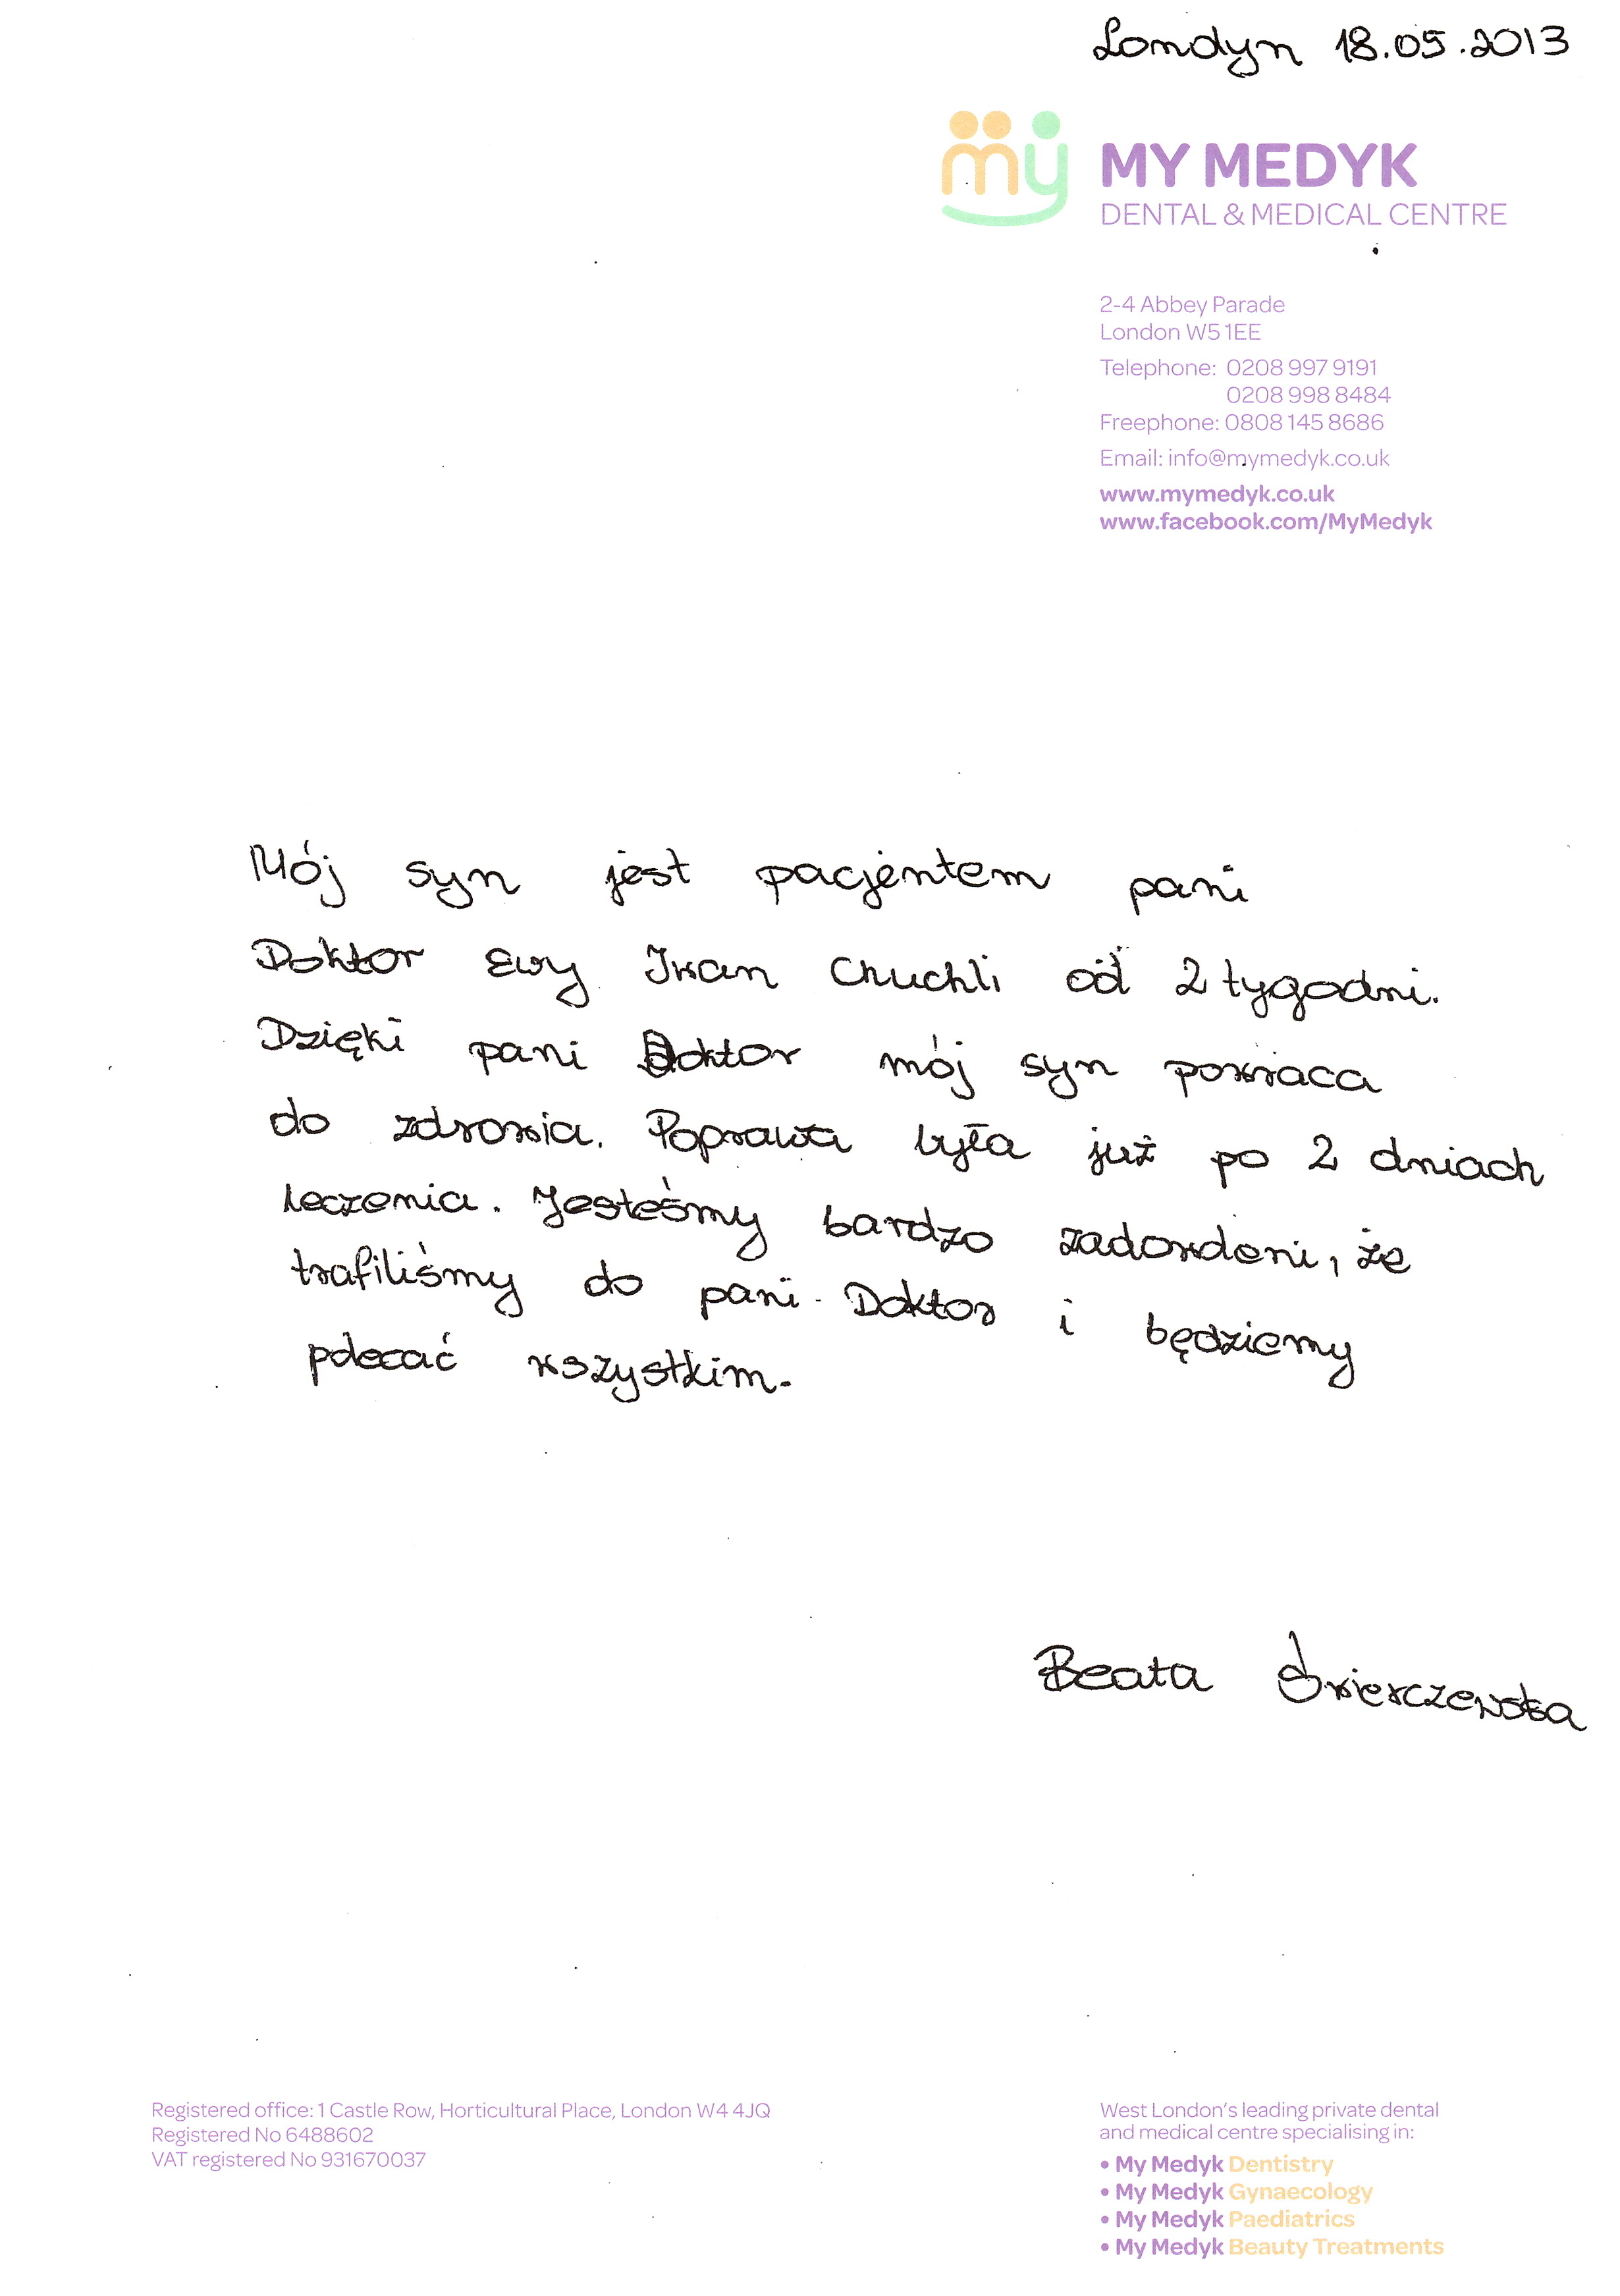 Londyn 18.05.2013
my MY MEDYK
DENTAL & MEDICAL CENTRE
2-4 Abbey Parade
London W5 1EE
Telephone: 0208 997 9191
0208 998 8484
Freephone: 0808 145 8686
Email: info@mymedyk.co.uk
www.mymedyk.co.uk
www.facebook.com/MyMedyk
Mój syn jest pacjentem pani
Doktor Ewy Iwan Chuchli od 2 tygodni.
Dzięki pani Doktor mój syn powraca
do zdrowia. Poprawa była już po 2 dniach
leczenia. Jesteśmy bardzo zadowoleni, że
trafiliśmy do pani Doktor i będziemy
polecać wszystkim.
Beata Świerczewska
Registered office: 1 Castle Row, Horticultural Place, London W4 4JQ
Registered No 6488602
VAT registered No 931670037
West London's leading private dental
and medical centre specialising in:
• My Medyk Dentistry
• My Medyk Gynaecology
• My Medyk Paediatrics
• My Medyk Beauty Treatments